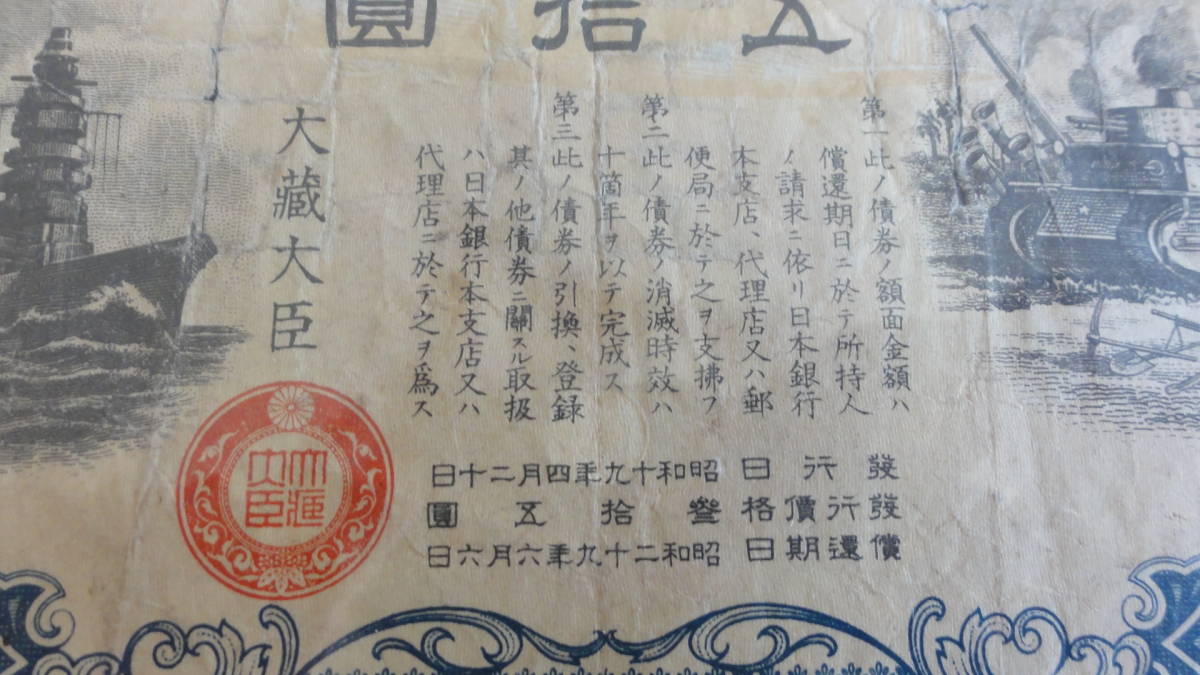 五拾圓
第一此ノ債券ノ額面金額ハ
償還期日ニ於テ所持人
ノ請求ニ依リ日本銀行
本支店、代理店又ハ郵
便局ニ於テ之ヲ支拂フ
第二此ノ債券ノ消滅時效ハ
十箇年ヲ以テ完成ス
第三此ノ債券ノ引換、登録
其ノ他債券ニ關スル取扱
ハ日本銀行本支店又ハ
代理店ニ於テ之ヲ爲ス
大藏大臣
大藏
大臣
發行日 昭和十九年四月二十日
發行價格 叁拾五圓
償還期日 昭和二十九年六月六日